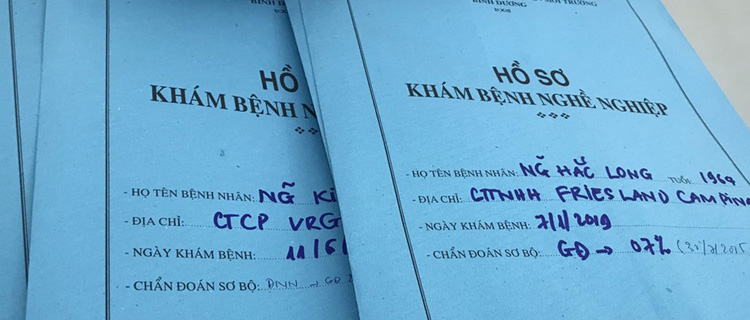 BÌNH DƯƠNG
HỒ
KHÁM BỆNH N
- HỌ TÊN BỆNH NHÂN: NG̃ Ki
- ĐỊA CHỈ: CTCP VRG
- NGÀY KHÁM BỆNH: 11/6/
- CHẨN ĐOÁN SƠ BỘ: BNN → GĐ
MÔI TRƯỜNG
BÌNH DƯƠNG
HỒ SƠ
KHÁM BỆNH NGHỀ NGHIỆP
- HỌ TÊN BỆNH NHÂN: NG̃ HẮC LONG TUỔI: 1969
- ĐỊA CHỈ: CTTNHH FRIESLAND CAMPINA
- NGÀY KHÁM BỆNH: 7/1/2019
- CHẨN ĐOÁN SƠ BỘ: GĐ → 07%